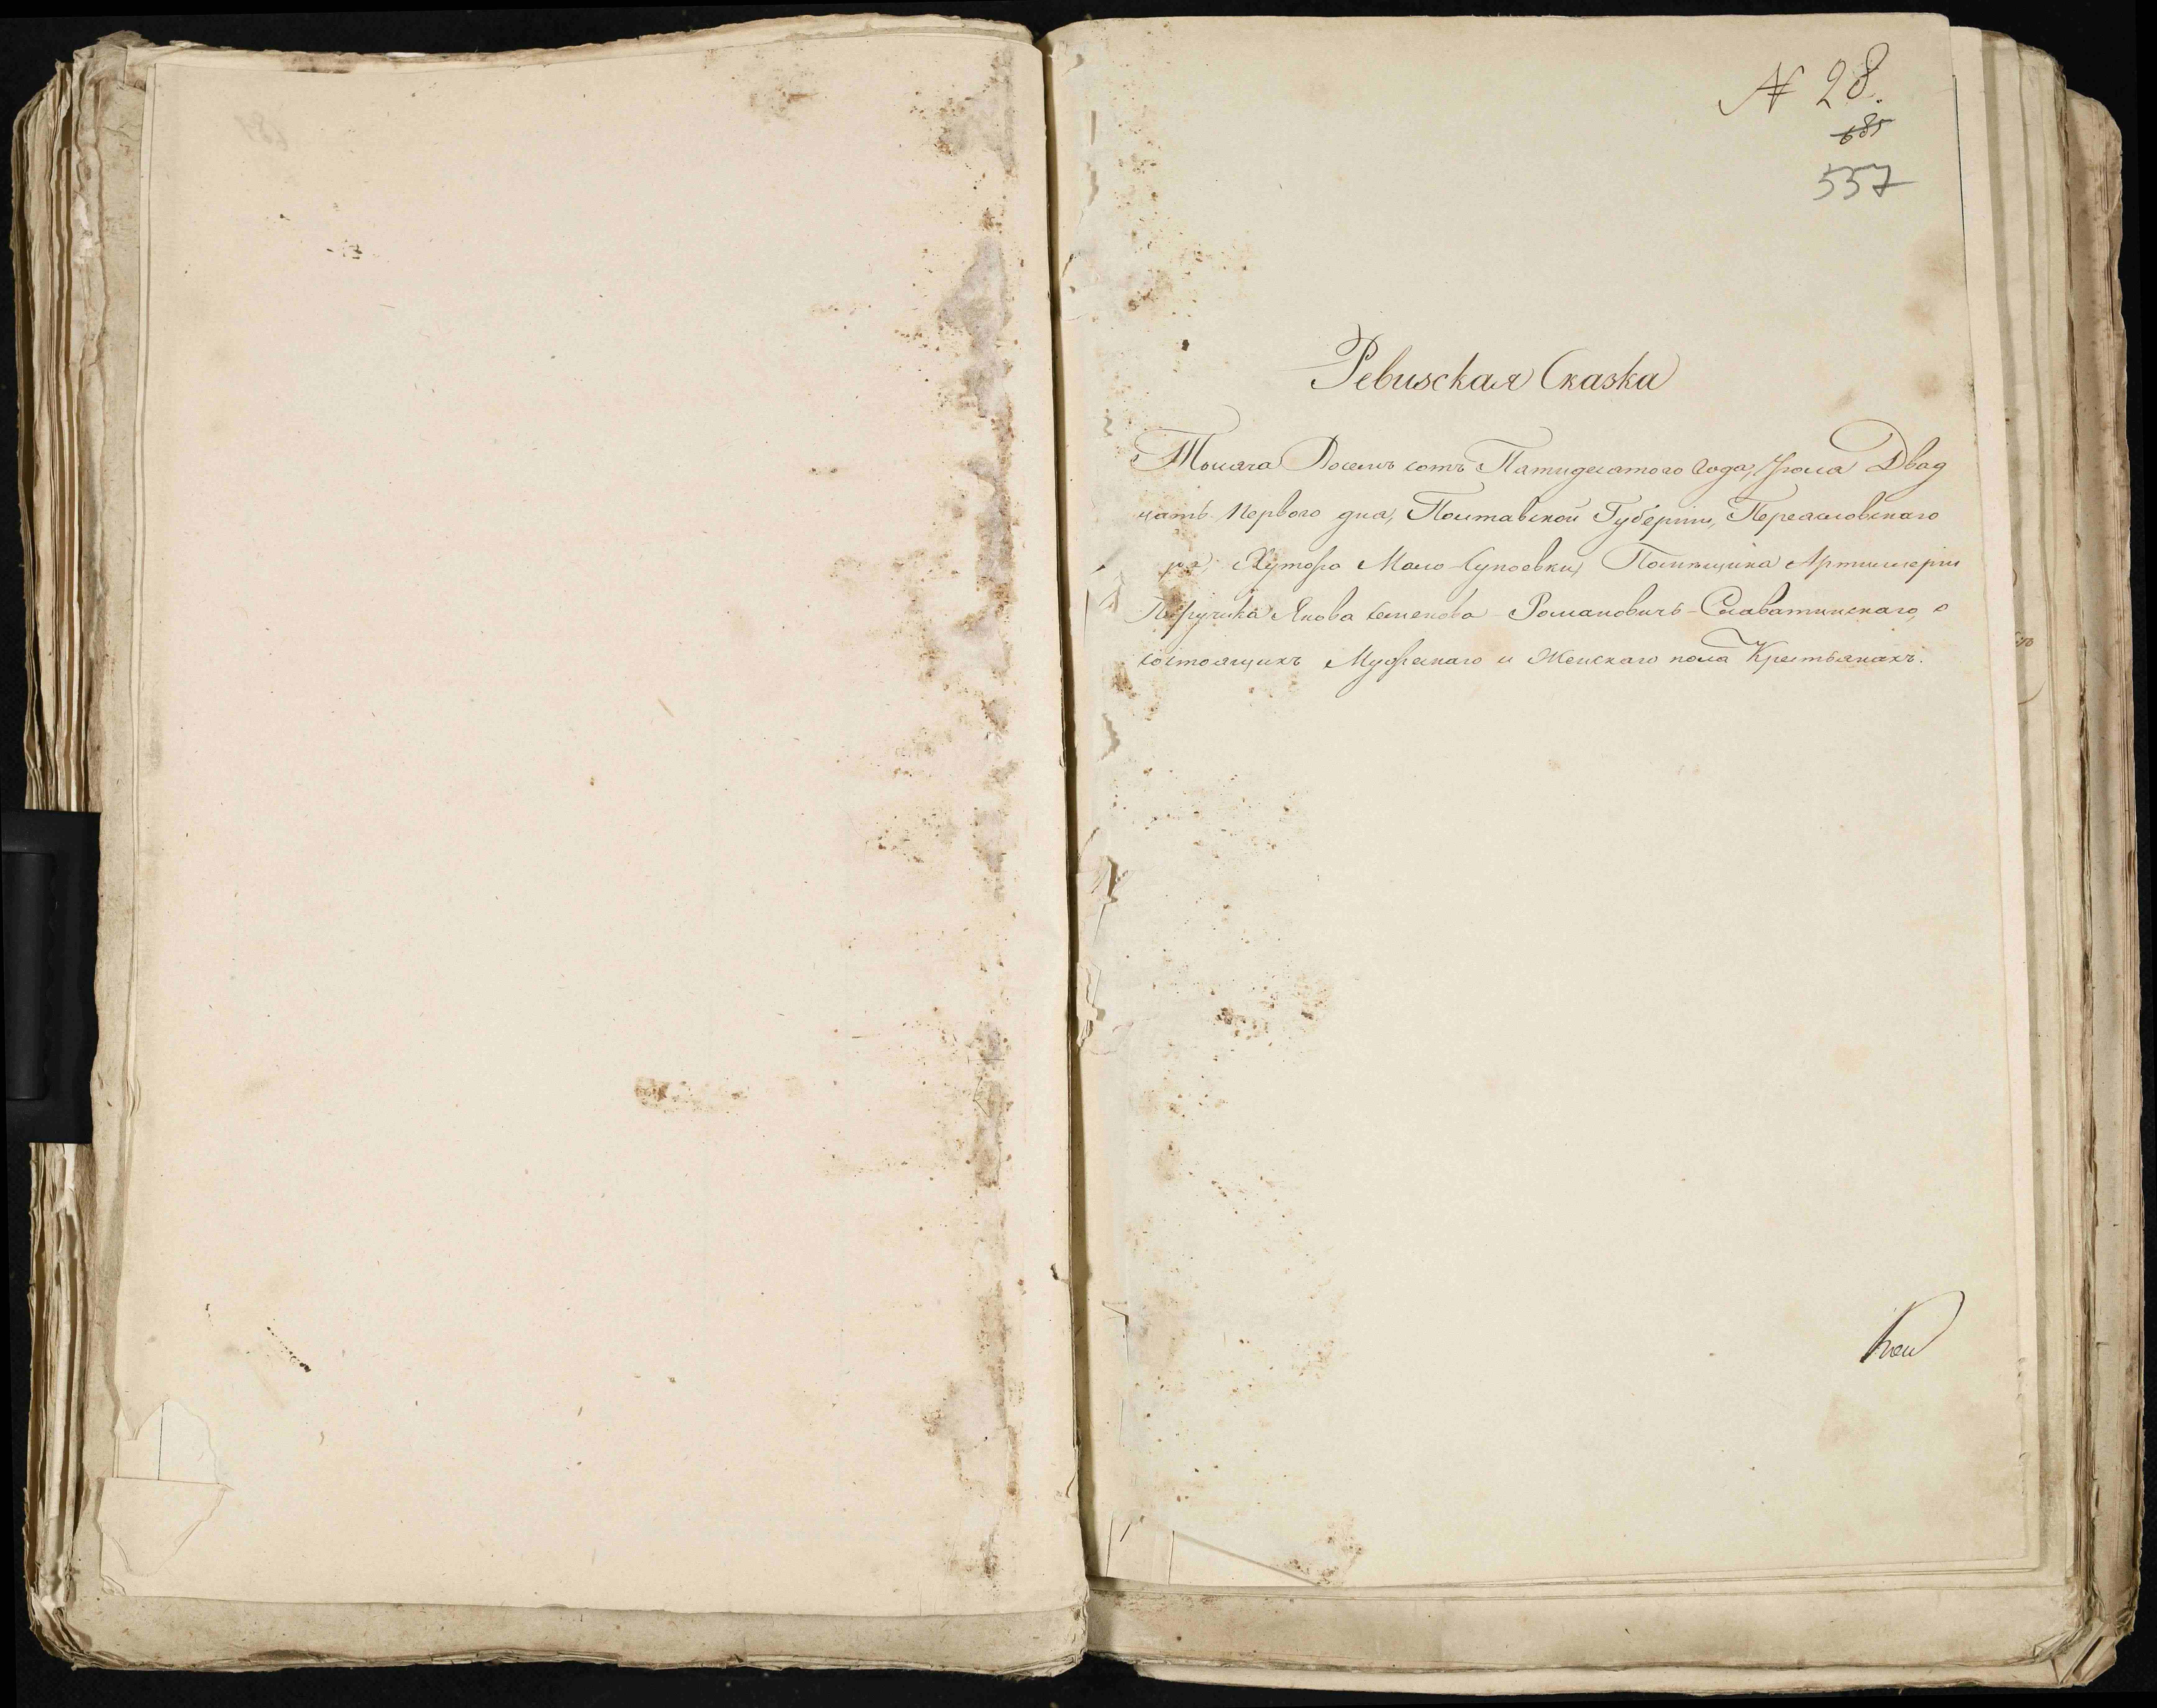 № 28.
685
557
Ревизская Сказка
Тысяча Восемь сотъ Пятидесятого Года, Двад
цать Первого дня, Полтавской Губернии, Переяславскаго
Хутора Мало-Супоевки, Помѣщика Артиллерии
Поручика Якова Семенова Романовичь-Славатинскаго, о
состоящихъ Мужескаго и Женскаго пола Крестьянахъ.